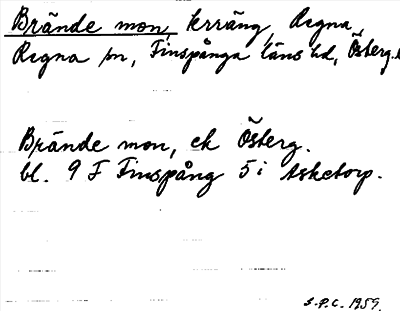 Brände mon, terräng, Regna,
Regna sn, Finspånga läns hd, Österg.
Brände mon, ek Österg.
bl. 9 F Finspång 5 i Asketorp.
S.P.C. 1959.